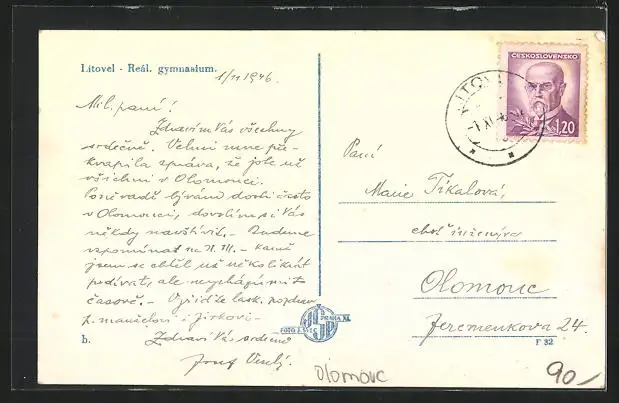 Litovel - Reál. gymnasium.
1/11 1946.
Mil. paní!
Zdravím Vás všechny
srdečně. Velmi mne pře-
kvapila zpráva, že jste už
všichni v Olomouci.
Poněvadž bývám dosti často
v Olomouci, dovolím si Vás
někdy navštívit. - Budeme
vzpomínat na
jsem se chtěl už několikrát
podívat, ale nevychází mi to
časově. - Vyřiďte lask. pozdrav
p. manželovi i Jirkovi -
Zdraví Vás srdečně
Josef Veselý.
b.
FOTO J. ŠVEC
PRAHA XI.
ČESKOSLOVENSKO
1,20
LITOVEL
Paní
Marie Tikalová,
choť inženýra
Olomouc
Jeremenkova 24.
F 32
Olomouc
90,-